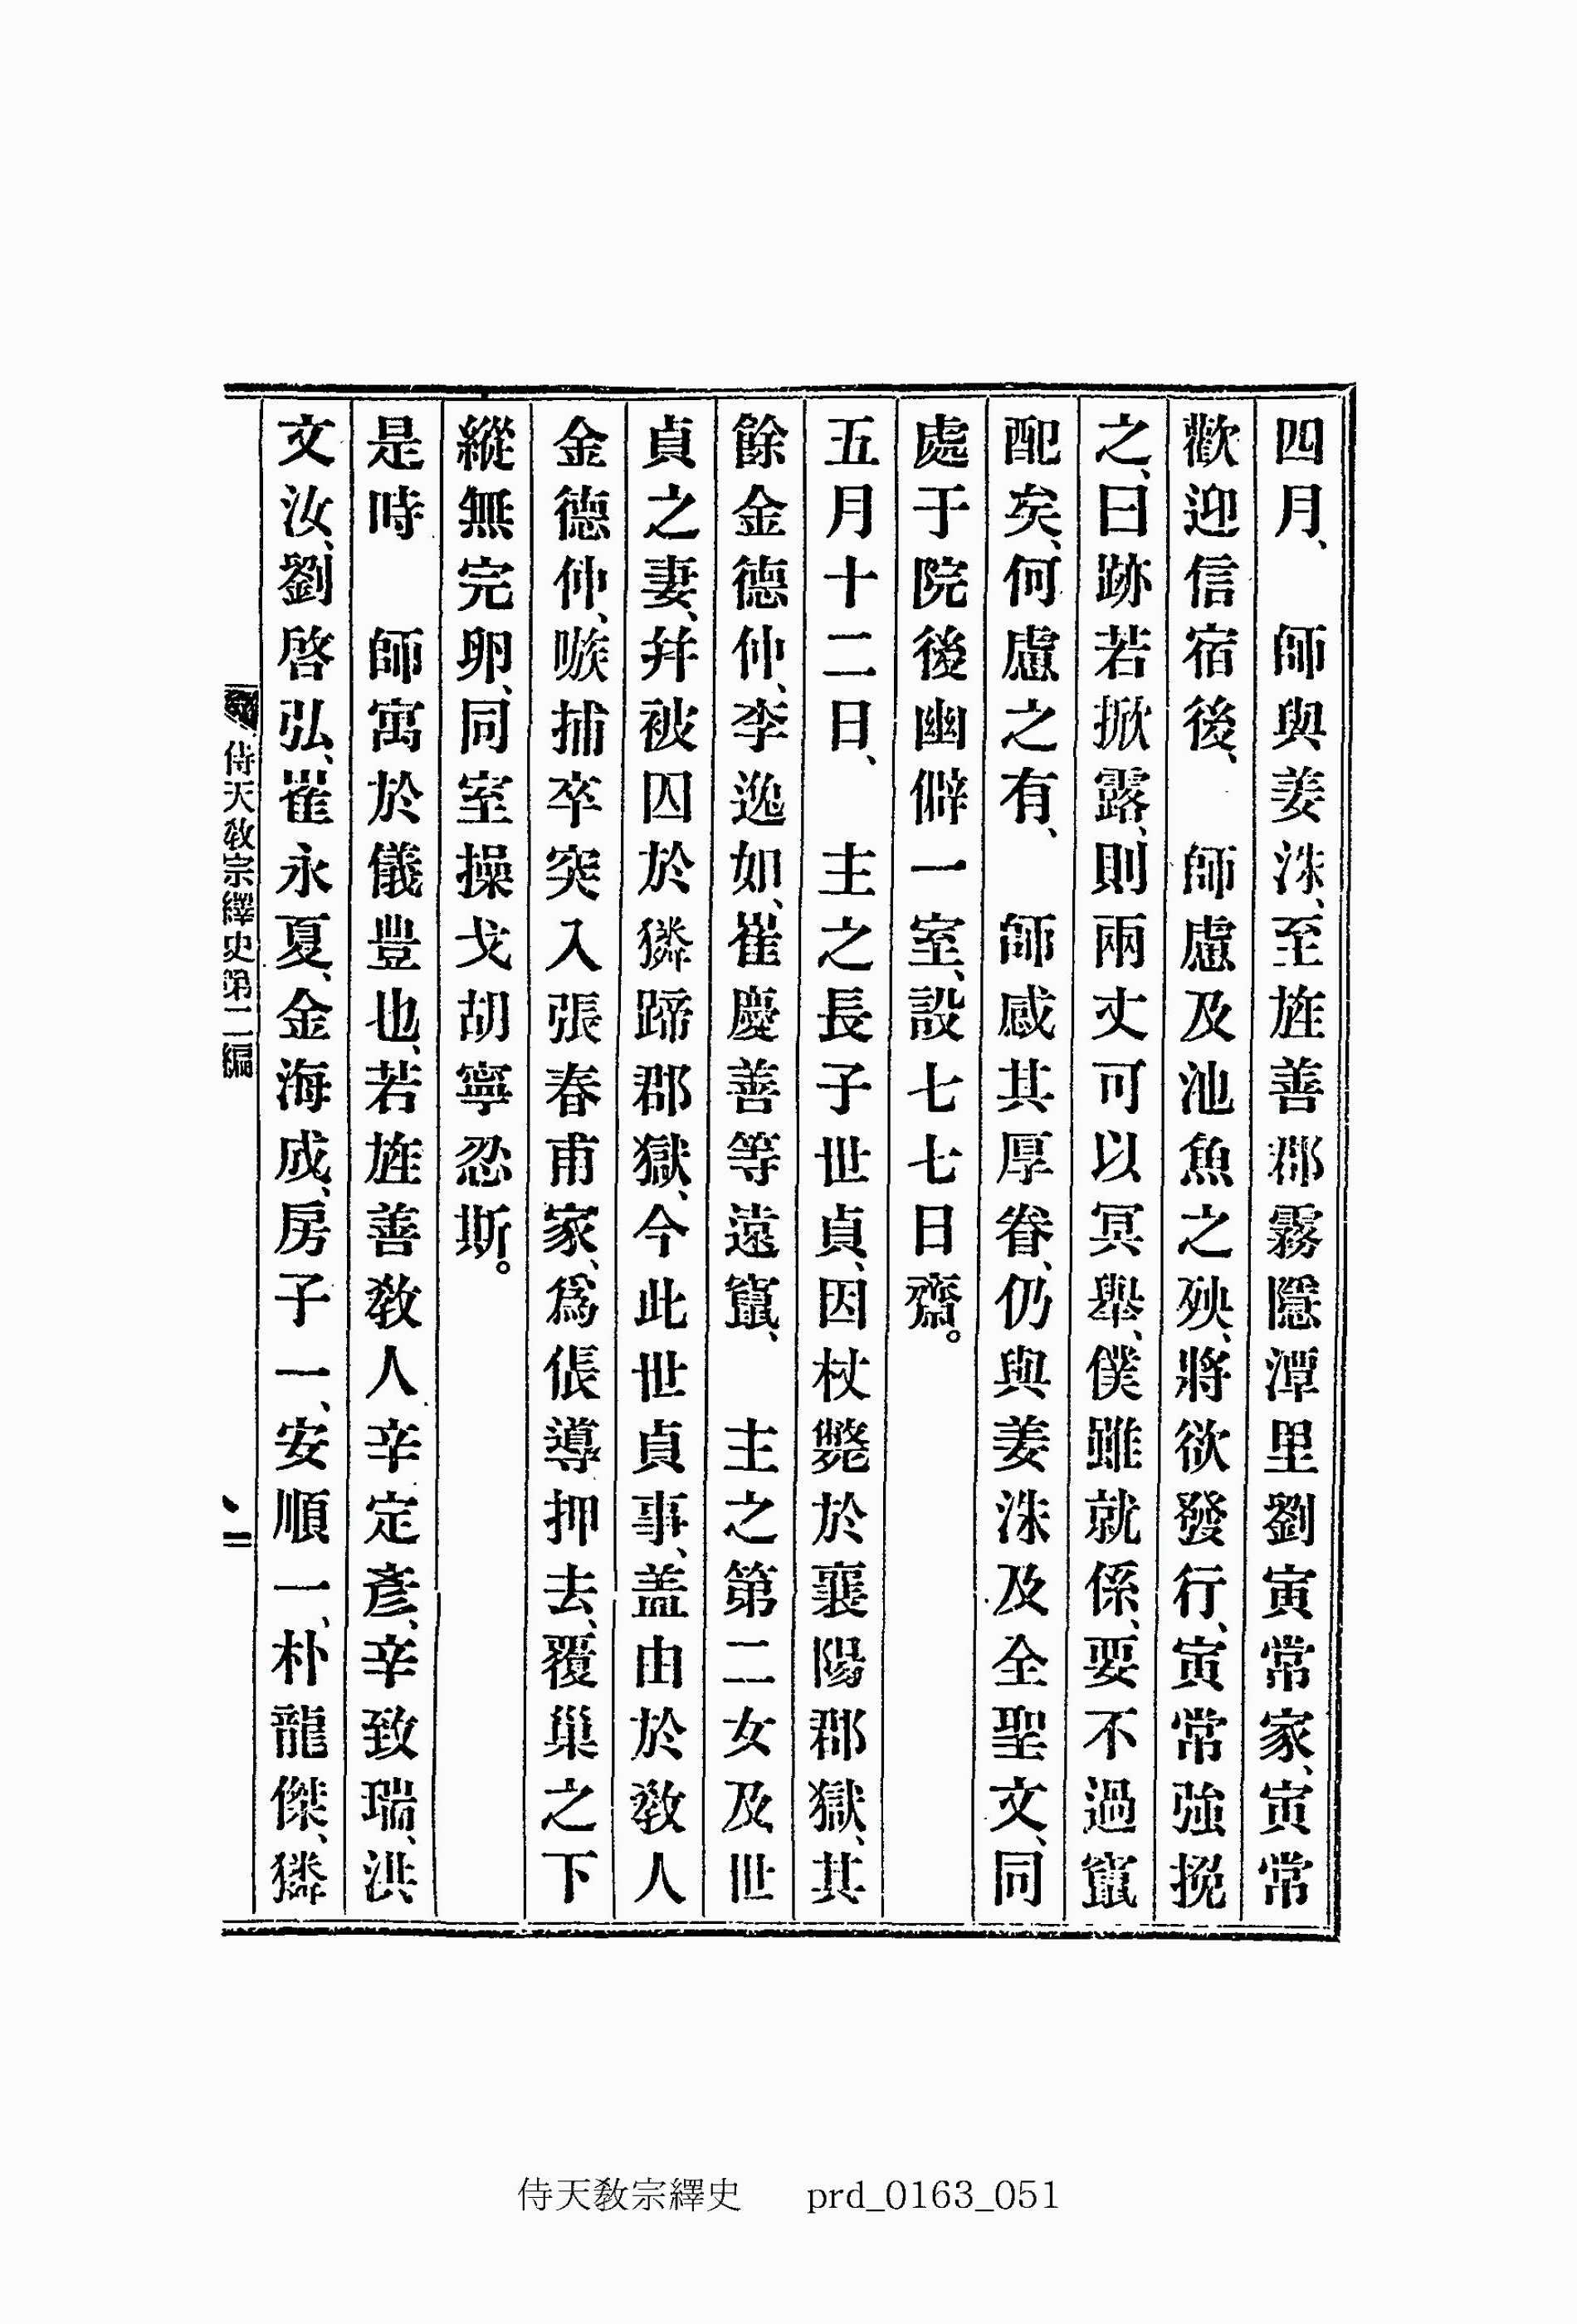 四月、　師與姜洙、至旌善郡霧隱潭里劉寅常家、寅常
歡迎信宿後、　師慮及池魚之殃、將欲發行、寅常強挽
之、曰跡若掀露、則兩丈可以冥擧、僕雖就係、要不過竄
配矣、何慮之有、　師感其厚眷、仍與姜洙及全聖文、同
處于院後幽僻一室、設七七日齋。
五月十二日、　主之長子世貞、因杖斃於襄陽郡獄、其
餘金德仲、李逸如、崔慶善等遠竄、　主之第二女及世
貞之妻、并被囚於獜蹄郡獄、今此世貞事、盖由於敎人
金德仲、嗾捕卒突入張春甫家、爲倀導押去、覆巢之下
縱無完卵、同室操戈胡寧忍斯。
是時　師寓於儀豊也、若旌善敎人辛定彥、辛致瑞、洪
文汝、劉啓弘、崔永夏、金海成、房子一、安順一、朴龍傑、獜
侍天敎宗繹史第二編
侍天敎宗繹史　prd_0163_051